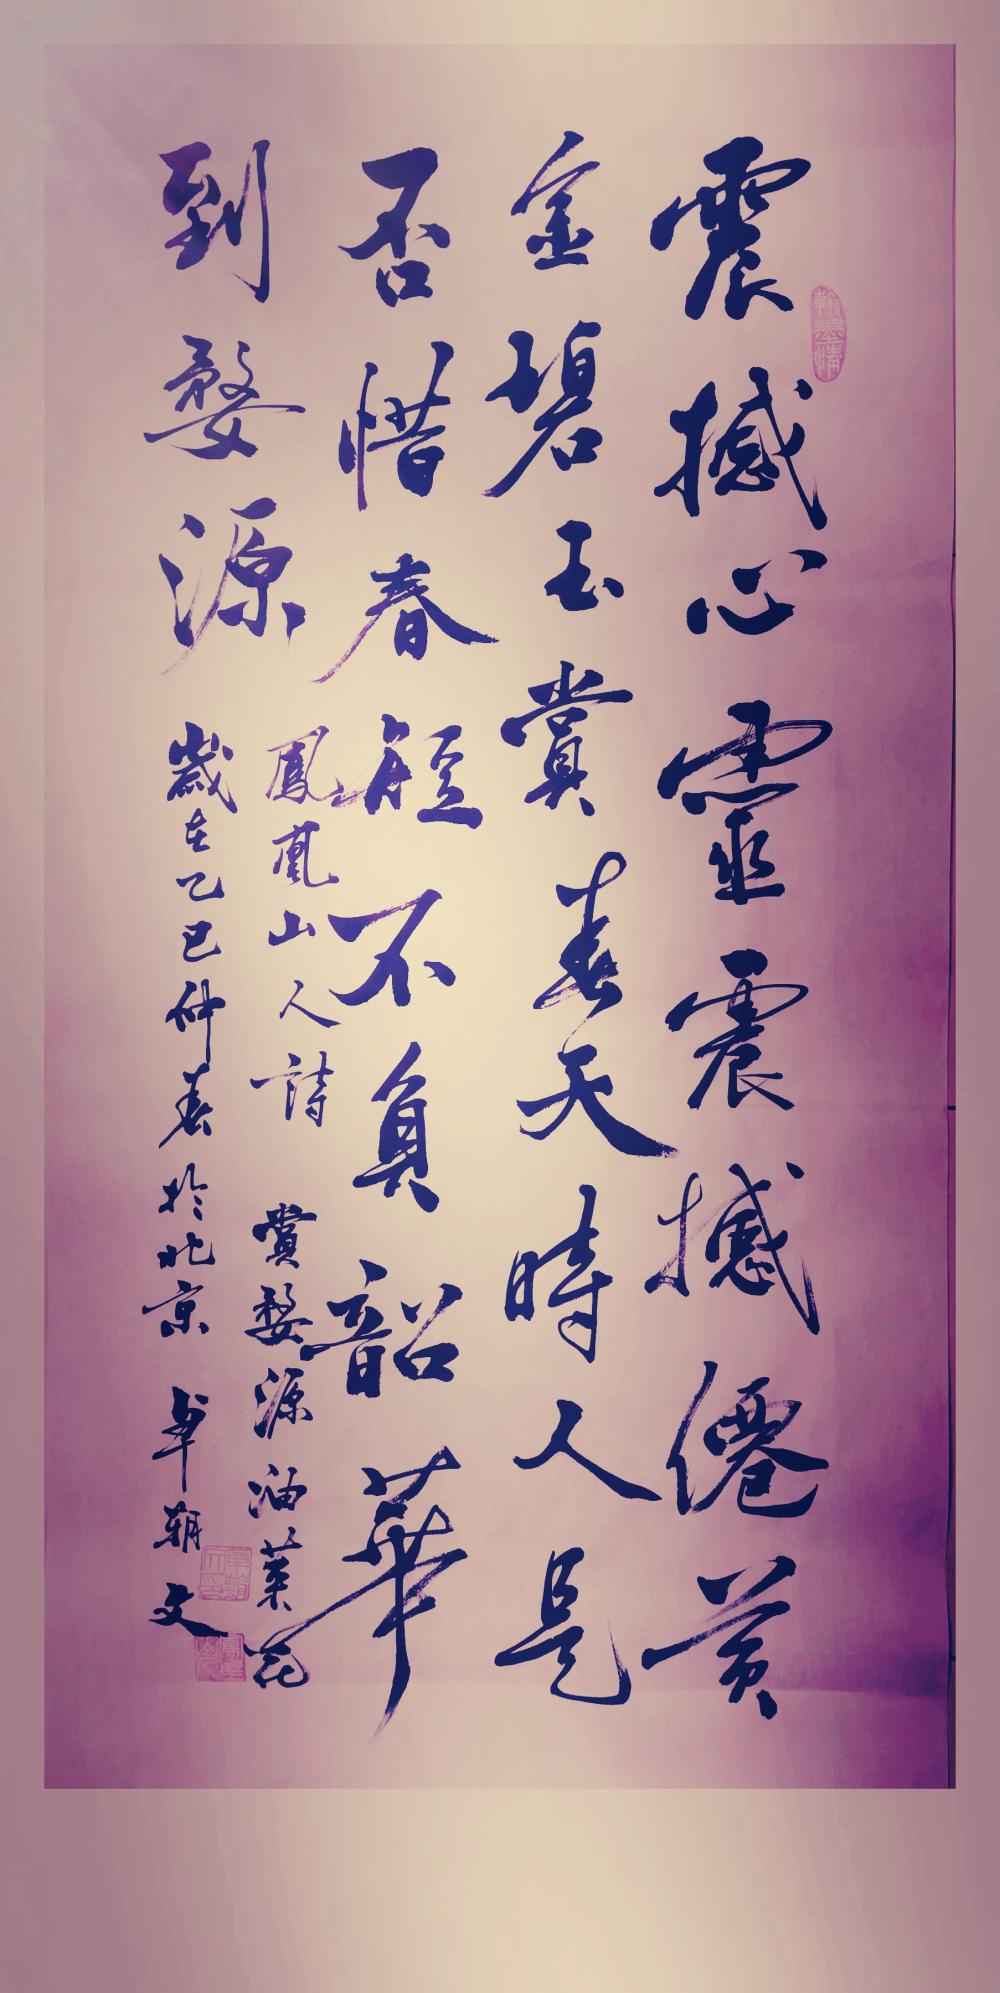 翰墨情
震撼心靈震撼僊黃
金碧玉賞春天時人是
否惜春短不負韶華
到婺源
鳳凰山人詩 賞婺源油菜花
歲在乙巳仲春於北京 卓朝文